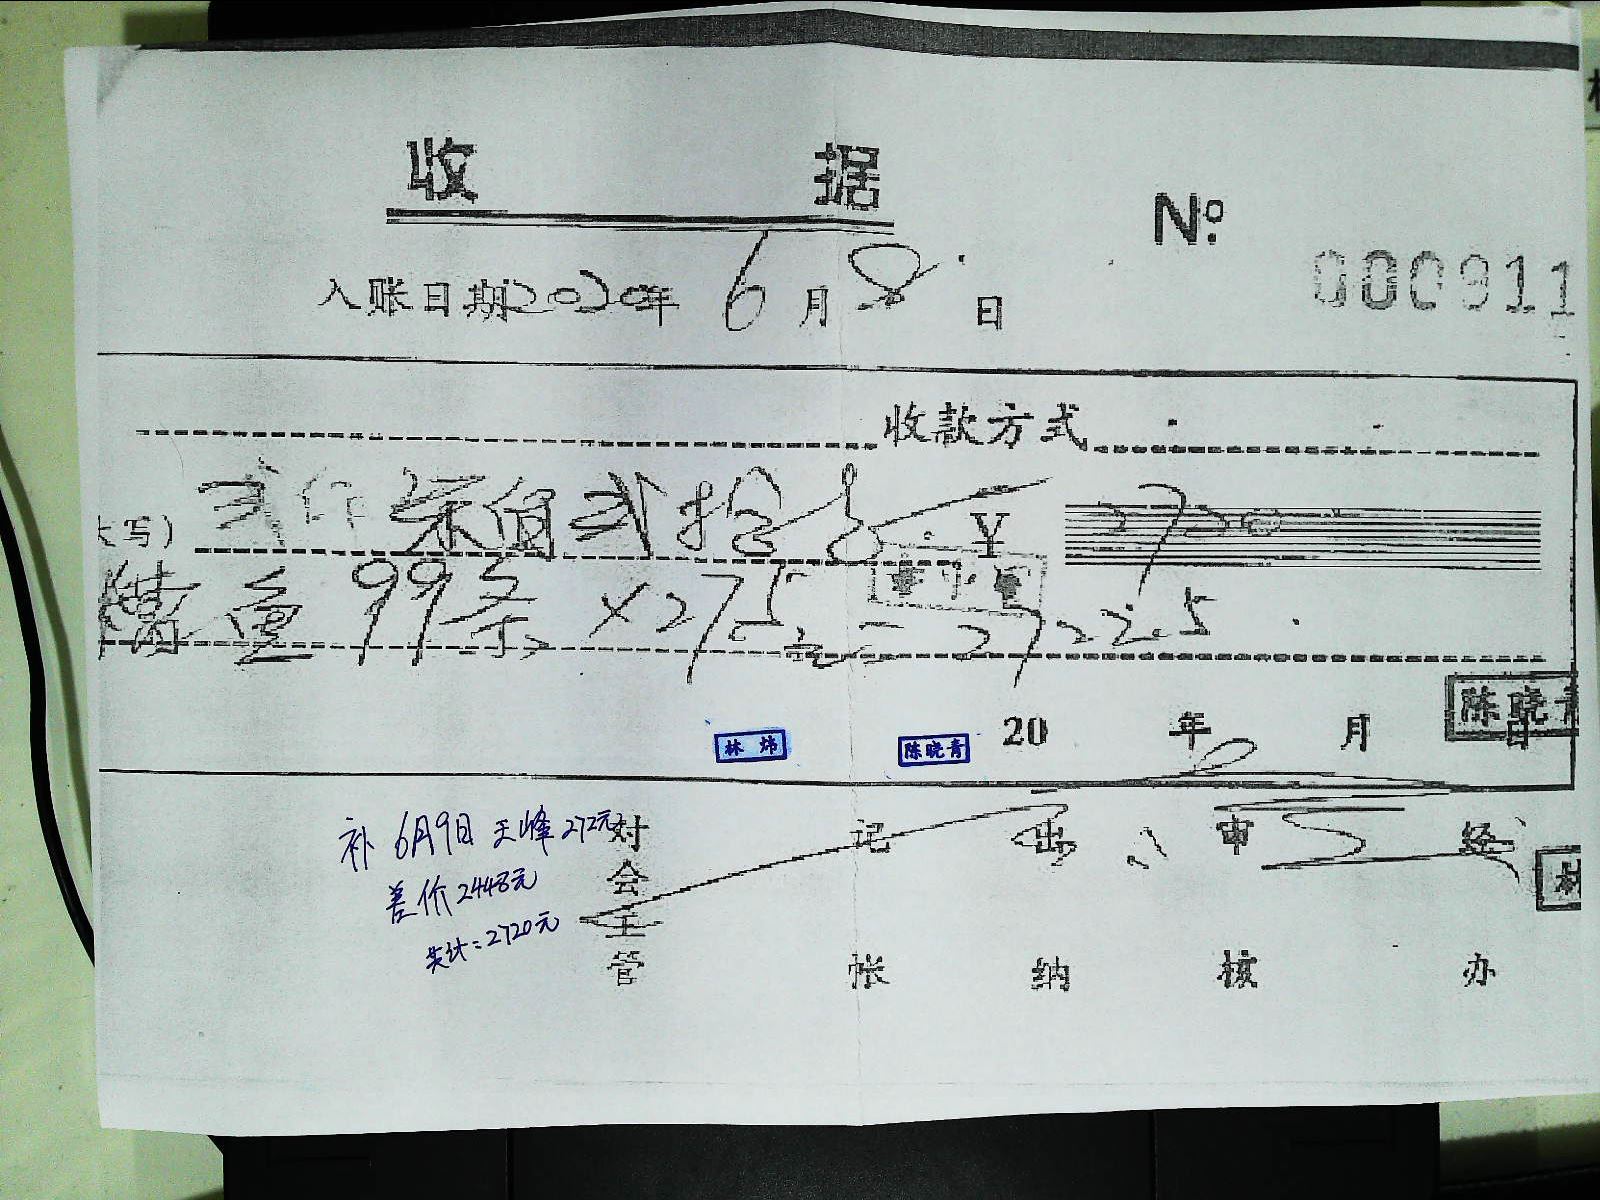 收 据
№
000911
入账日期2020年 6月 8日
收款方式
大写) 弍仟柒佰弍拾 ¥ 2720
鱼 99条 × 27.5元 = 2722.5
陈晓青
20 年 月 日
林炜 陈晓青
补 6月9日 王峰 272元
差价 2448元
共计: 2720元
对会主管 记帐 出纳 审核 经办